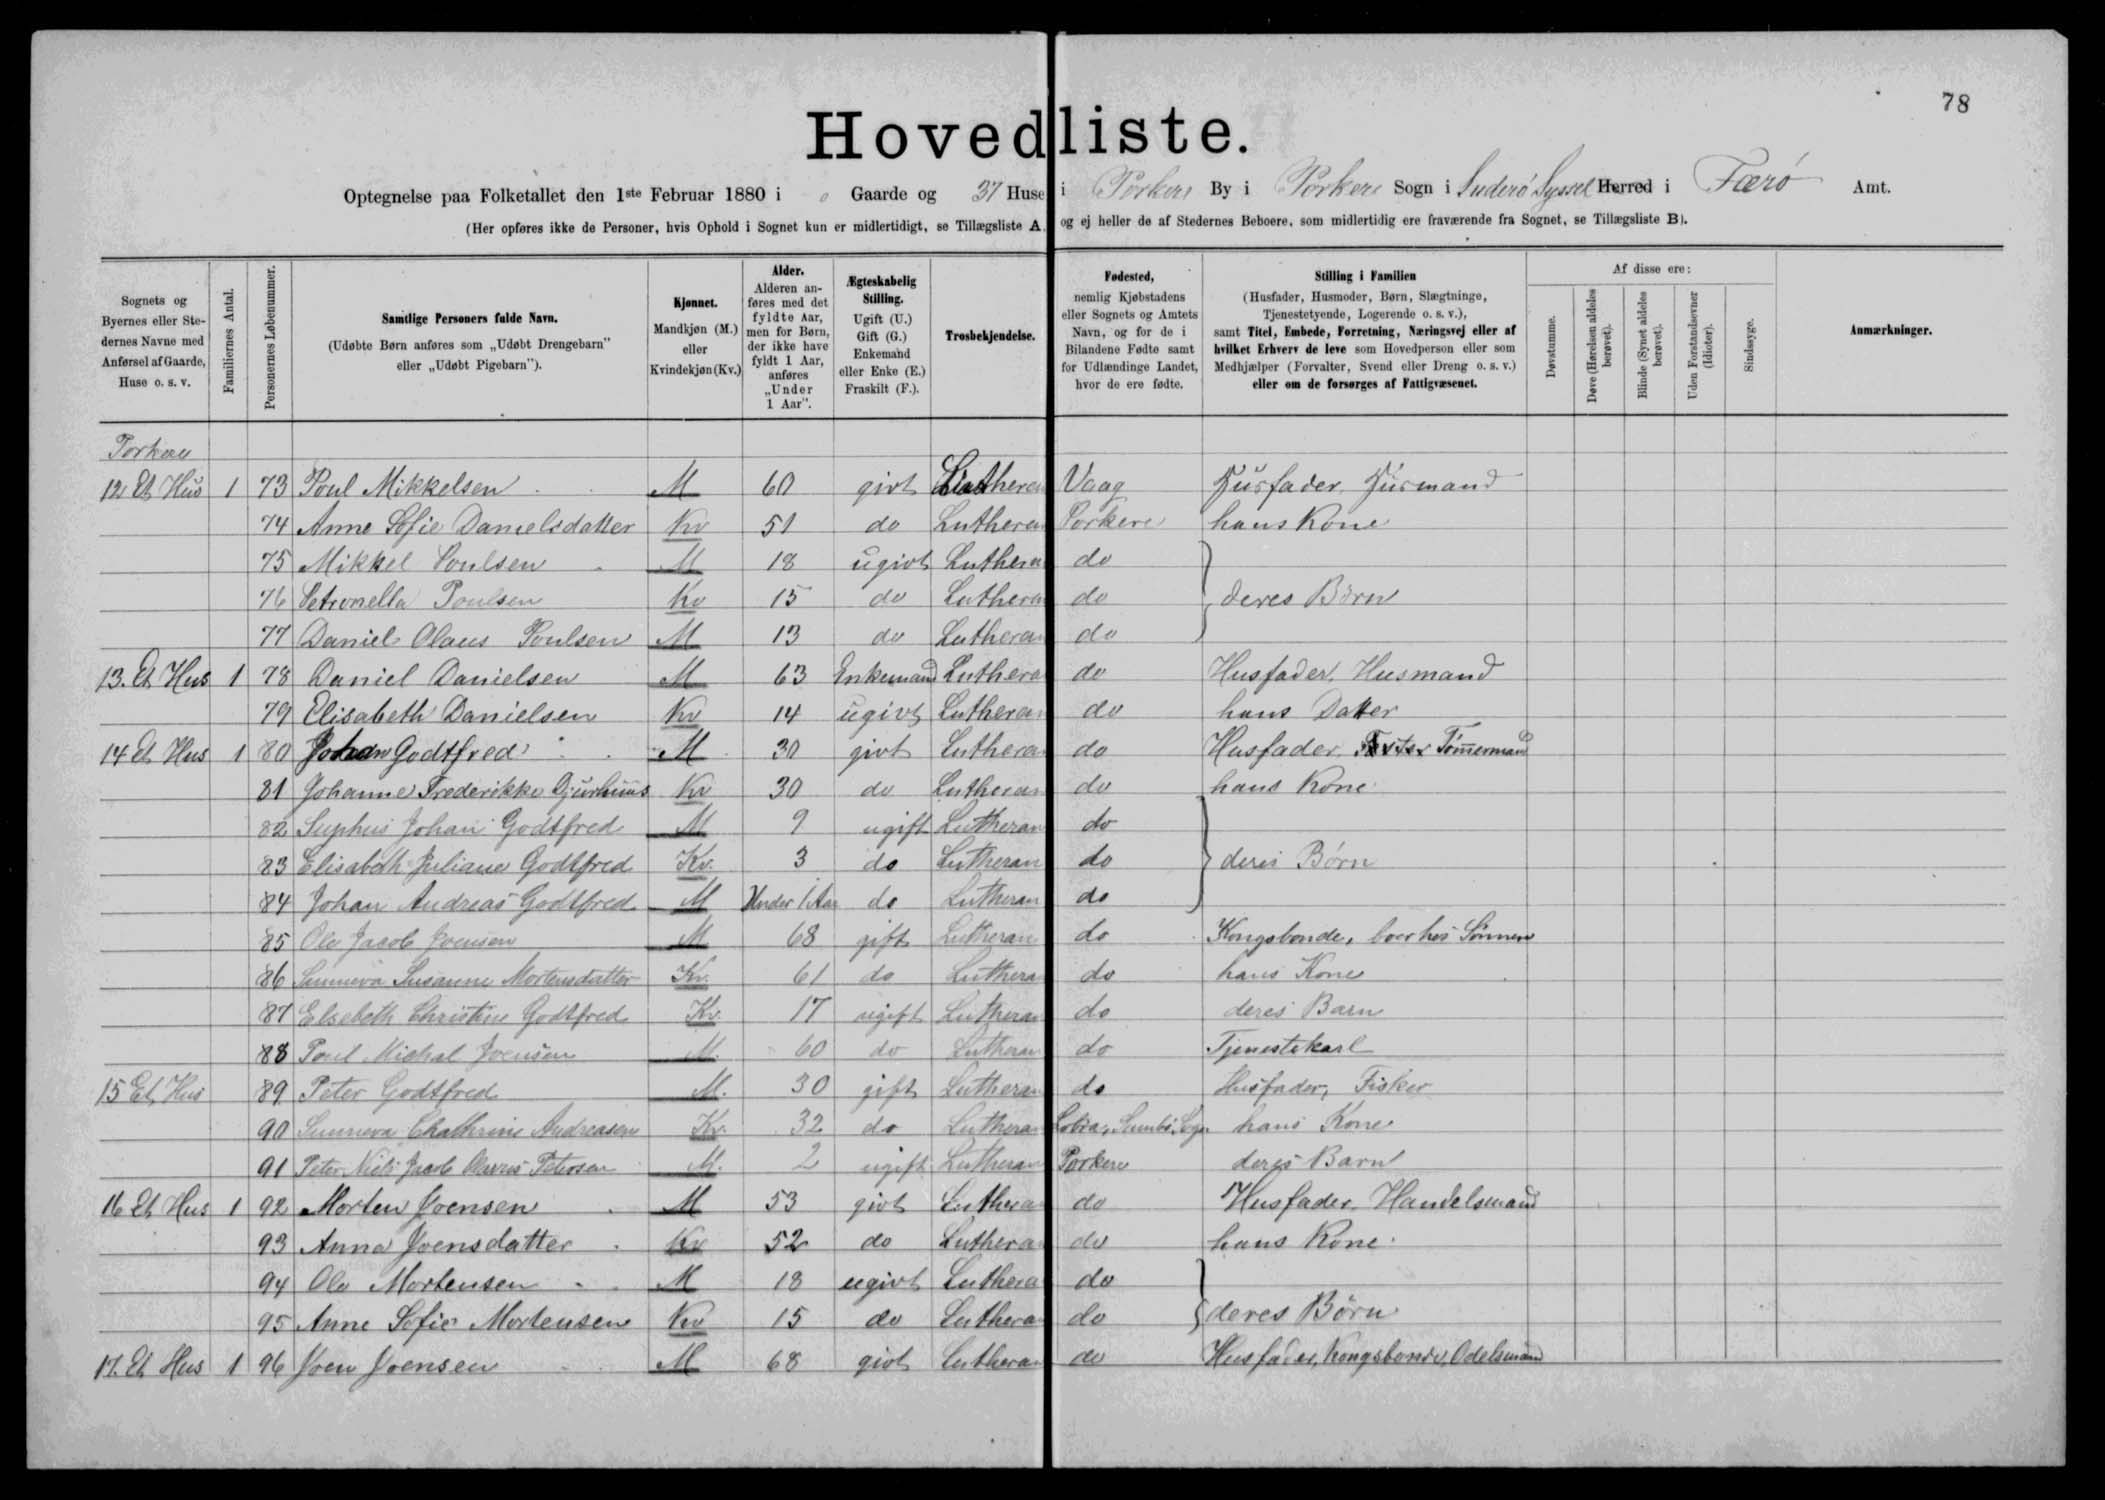 78
Hovedliste.
Optegnelse paa Folketallet den 1ste Februar 1880 i 0 Gaarde og 37 Huse i Porkere By i Porkere Sogn i Suderö Syssel Herred i Færö Amt.
(Her opføres ikke de Personer, hvis Ophold i Sognet kun er midlertidigt, se Tillægsliste A, og ej heller de af Stedernes Beboere, som midlertidig ere fraværende fra Sognet, se Tillægsliste B).
Sognets og Byernes eller Stedernes Navne med Anførsel af Gaarde, Huse o. s. v.
Familiernes Antal.
Personernes Løbenummer.
Samtlige Personers fulde Navn.
(Udøbte Børn anføres som „Udøbt Drengebarn" eller „Udøbt Pigebarn").
Kjønnet.
Mandkjøn (M.) eller Kvindekjøn (Kv.)
Alder.
Alderen anføres med det fyldte Aar, men for Børn, der ikke have fyldt 1 Aar, anføres „Under 1 Aar".
Ægteskabelig Stilling.
Ugift (U.) Gift (G.) Enkemand eller Enke (E.) Fraskilt (F.).
Trosbekjendelse.
Fødested,
nemlig Kjøbstadens eller Sognets og Amtets Navn, og for de i Bilandene Fødte samt for Udlændinge Landet, hvor de ere fødte.
Stilling i Familien
(Husfader, Husmoder, Børn, Slægtninge, Tjenestetyende, Logerende o. s. v.), samt Titel, Embede, Forretning, Næringsvej eller af hvilket Erhverv de leve som Hovedperson eller som Medhjælper (Forvalter, Svend eller Dreng o. s. v.) eller om de forsørges af Fattigvæsenet.
Af disse ere:
Døvstumme.
Døve (Hørelsen aldeles berøvet).
Blinde (Synet aldeles berøvet).
Uden Forstandsevner (Idioter).
Sindssyge.
Anmærkninger.
Porkere
12 Et Hus 1 73 Poul Mikkelsen M 60 givt Lutheran Vaag Husfader, Husmand
74 Anne Sofie Danielsdatter Kv 51 do Lutheran Porkere hans Kone
75 Mikkel Poulsen M 18 ugivt Lutheran do
76 Petronella Poulsen Kv 15 do Lutheran do deres Börn
77 Daniel Olaus Poulsen M 13 do Lutheran do
13. Et Hus 1 78 Daniel Danielsen M 63 Enkemand Lutheran do Husfader, Husmand
79 Elisabeth Danielsen Kv 14 ugivt Lutheran do hans Datter
14 Et Hus 1 80 Johan Godtfred M 30 givt Lutheran do Husfader, Tömermand
81 Johanne Frederikke Djurhuus Kv 30 do Lutheran do hans Kone
82 Suphus Johan Godtfred M 9 ugift Lutheran do
83 Elisabeth Juliane Godtfred Kv. 3 do Lutheran do deres Børn
84 Johan Andreas Godtfred M Under 1 Aar do Lutheran do
85 Ole Jacob Joensen M 68 gift Lutheran do Kongsbonde, boer hos Sønnen
86 Sunneva Susanne Mortensdatter Kv. 61 do Lutheran do hans Kone
87 Elsebeth Christine Godtfred Kv. 17 ugift Lutheran do deres Barn
88 Poul Michal Joensen M. 60 do Lutheran do Tjenestekarl
15 Et Hus 89 Peter Godtfred M. 30 gift Lutheran do Husfader, Fisker
90 Sunneva Chathrine Andreasen Kv. 32 do Lutheran Lobra, Sumbö Sogn hans Kone
91 Peter Niels Jacob Petersen M. 2 ugift Lutheran Porkere deres Barn
16 Et Hus 1 92 Morten Joensen M 53 givt Lutheran do Husfader, Handelsmand
93 Anna Joensdatter Kv 52 do Lutheran do hans Kone
94 Ole Mortensen M 18 ugivt Lutheran do
95 Anne Sofie Mortensen Kv 15 do Lutheran do deres Börn
17. Et Hus 1 96 Joen Joensen M 68 givt Lutheran do Husfader, Kongsbonde, Odelsmand